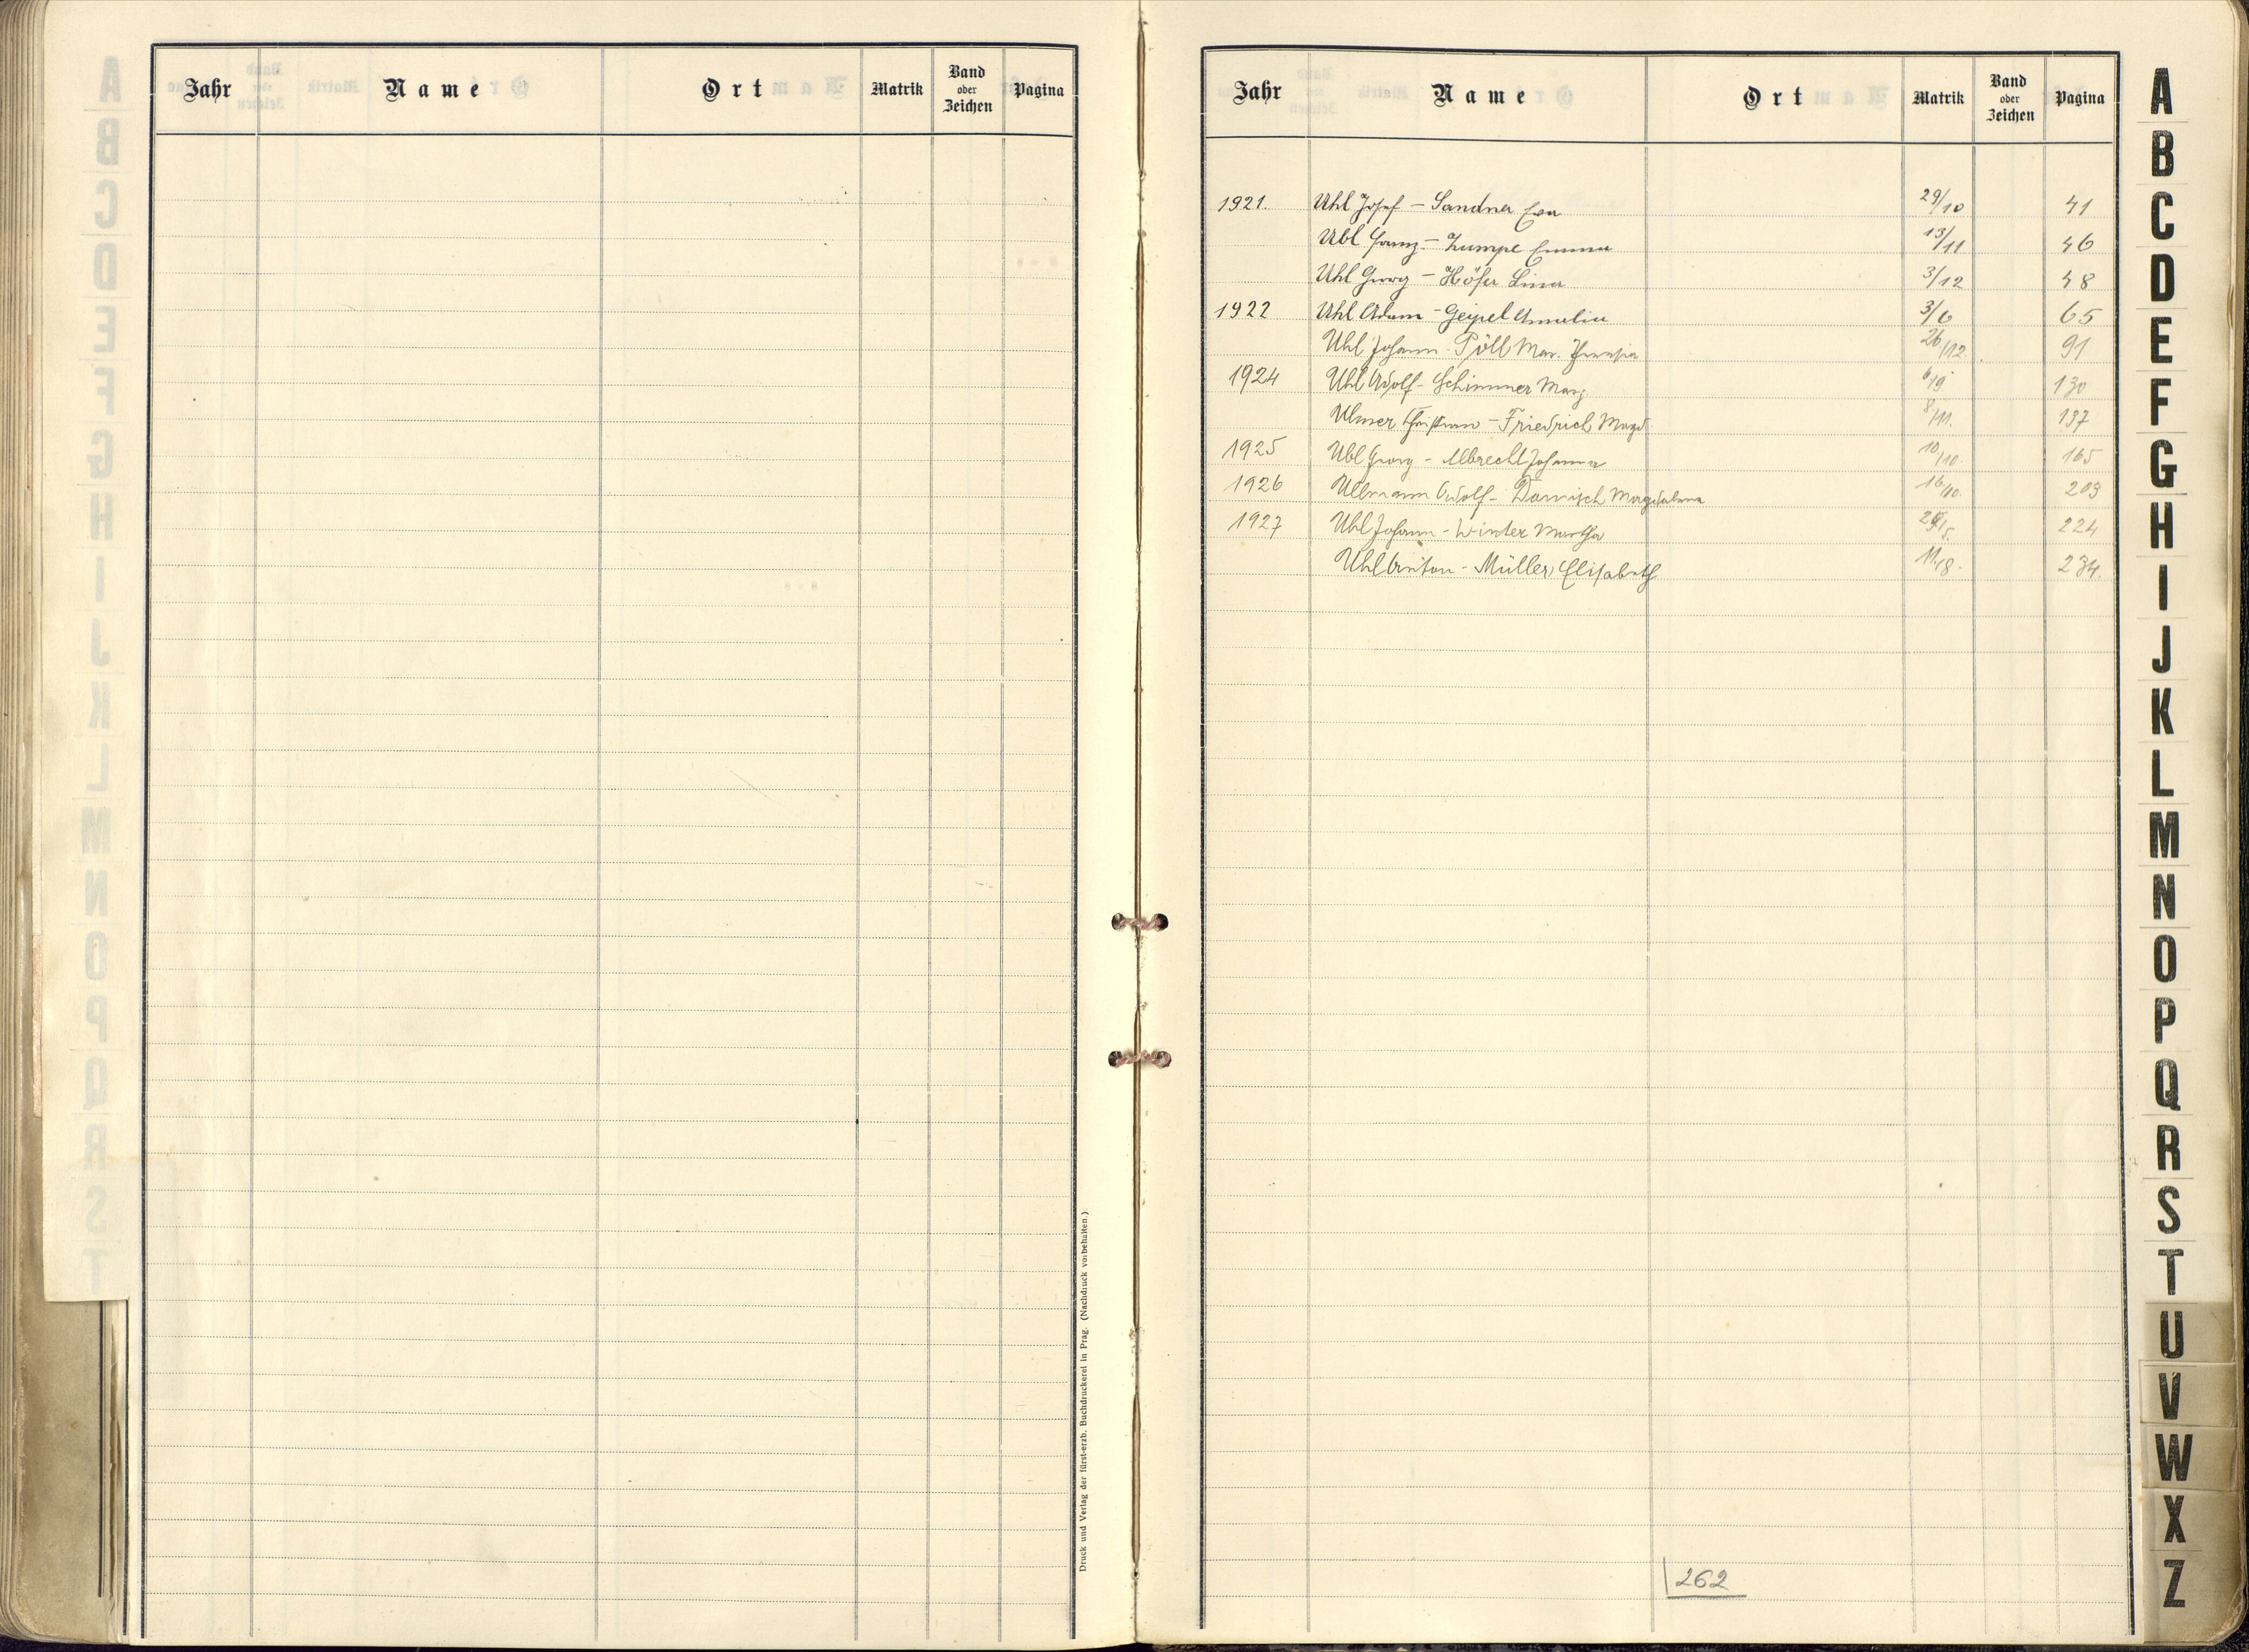 Jahr Name Ort Matrik Band oder Zeichen Pagina
Druck und Verlag der fürst-erzb. Buchdruckerei in Prag. (Nachdruck vorbehalten.)
Jahr Name Ort Matrik Band oder Zeichen Pagina
1921. Uhl Josef – Sandner Eva 29/10 41
Ubl Franz – Zumpe Emma 13/11 46
Uhl Georg – Höfer Lina 3/12 48
1922 Uhl Adam – Geipel Amalia 3/6 65
Uhl Johann – Pöll Mar. Theresia 26/12 91
1924 Uhl Adolf – Schimmer Marg 6/9 130
Ulmer Christian – Friedrich Magd. 8/11. 137
1925 Ubl Georg – Albrecht Johanna 10/10. 165
1926 Ullmann Adolf – Magdalena 16/10. 203
1927 Uhl Johann – Winter Martha /5. 224
Uhl Anton – Müller Elisabeth 11/8. 234.
262
A
B
C
D
E
F
G
H
I
J
K
L
M
N
O
P
Q
R
S
T
U
V
W
X
Z